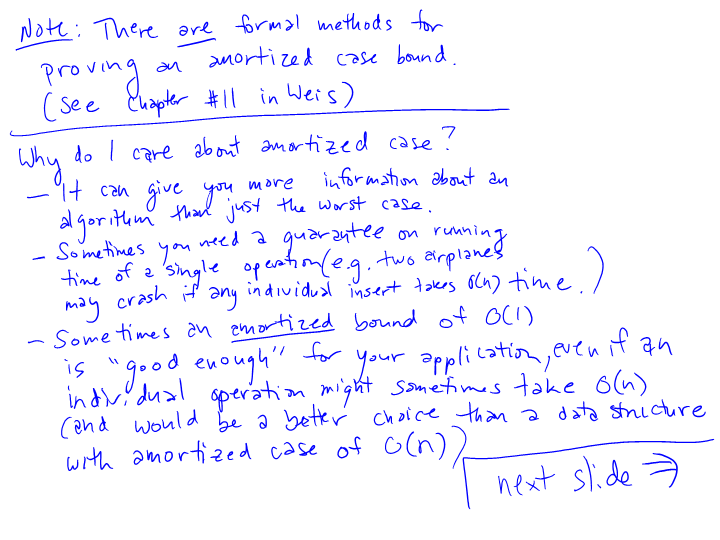 Note: There are formal methods for
proving an amortized case bound.
(see Chapter #11 in Weis)
Why do I care about amortized case?
- It can give you more information about an
algorithm than just the worst case.
- Sometimes you need a guarantee on running
time of a single operation (e.g. two airplanes
may crash if any individual insert takes O(n) time.)
- Sometimes an amortized bound of O(1)
is "good enough" for your application, even if an
individual operation might sometimes take O(n)
(and would be a better choice than a data structure
with amortized case of O(n))
next slide ⇒